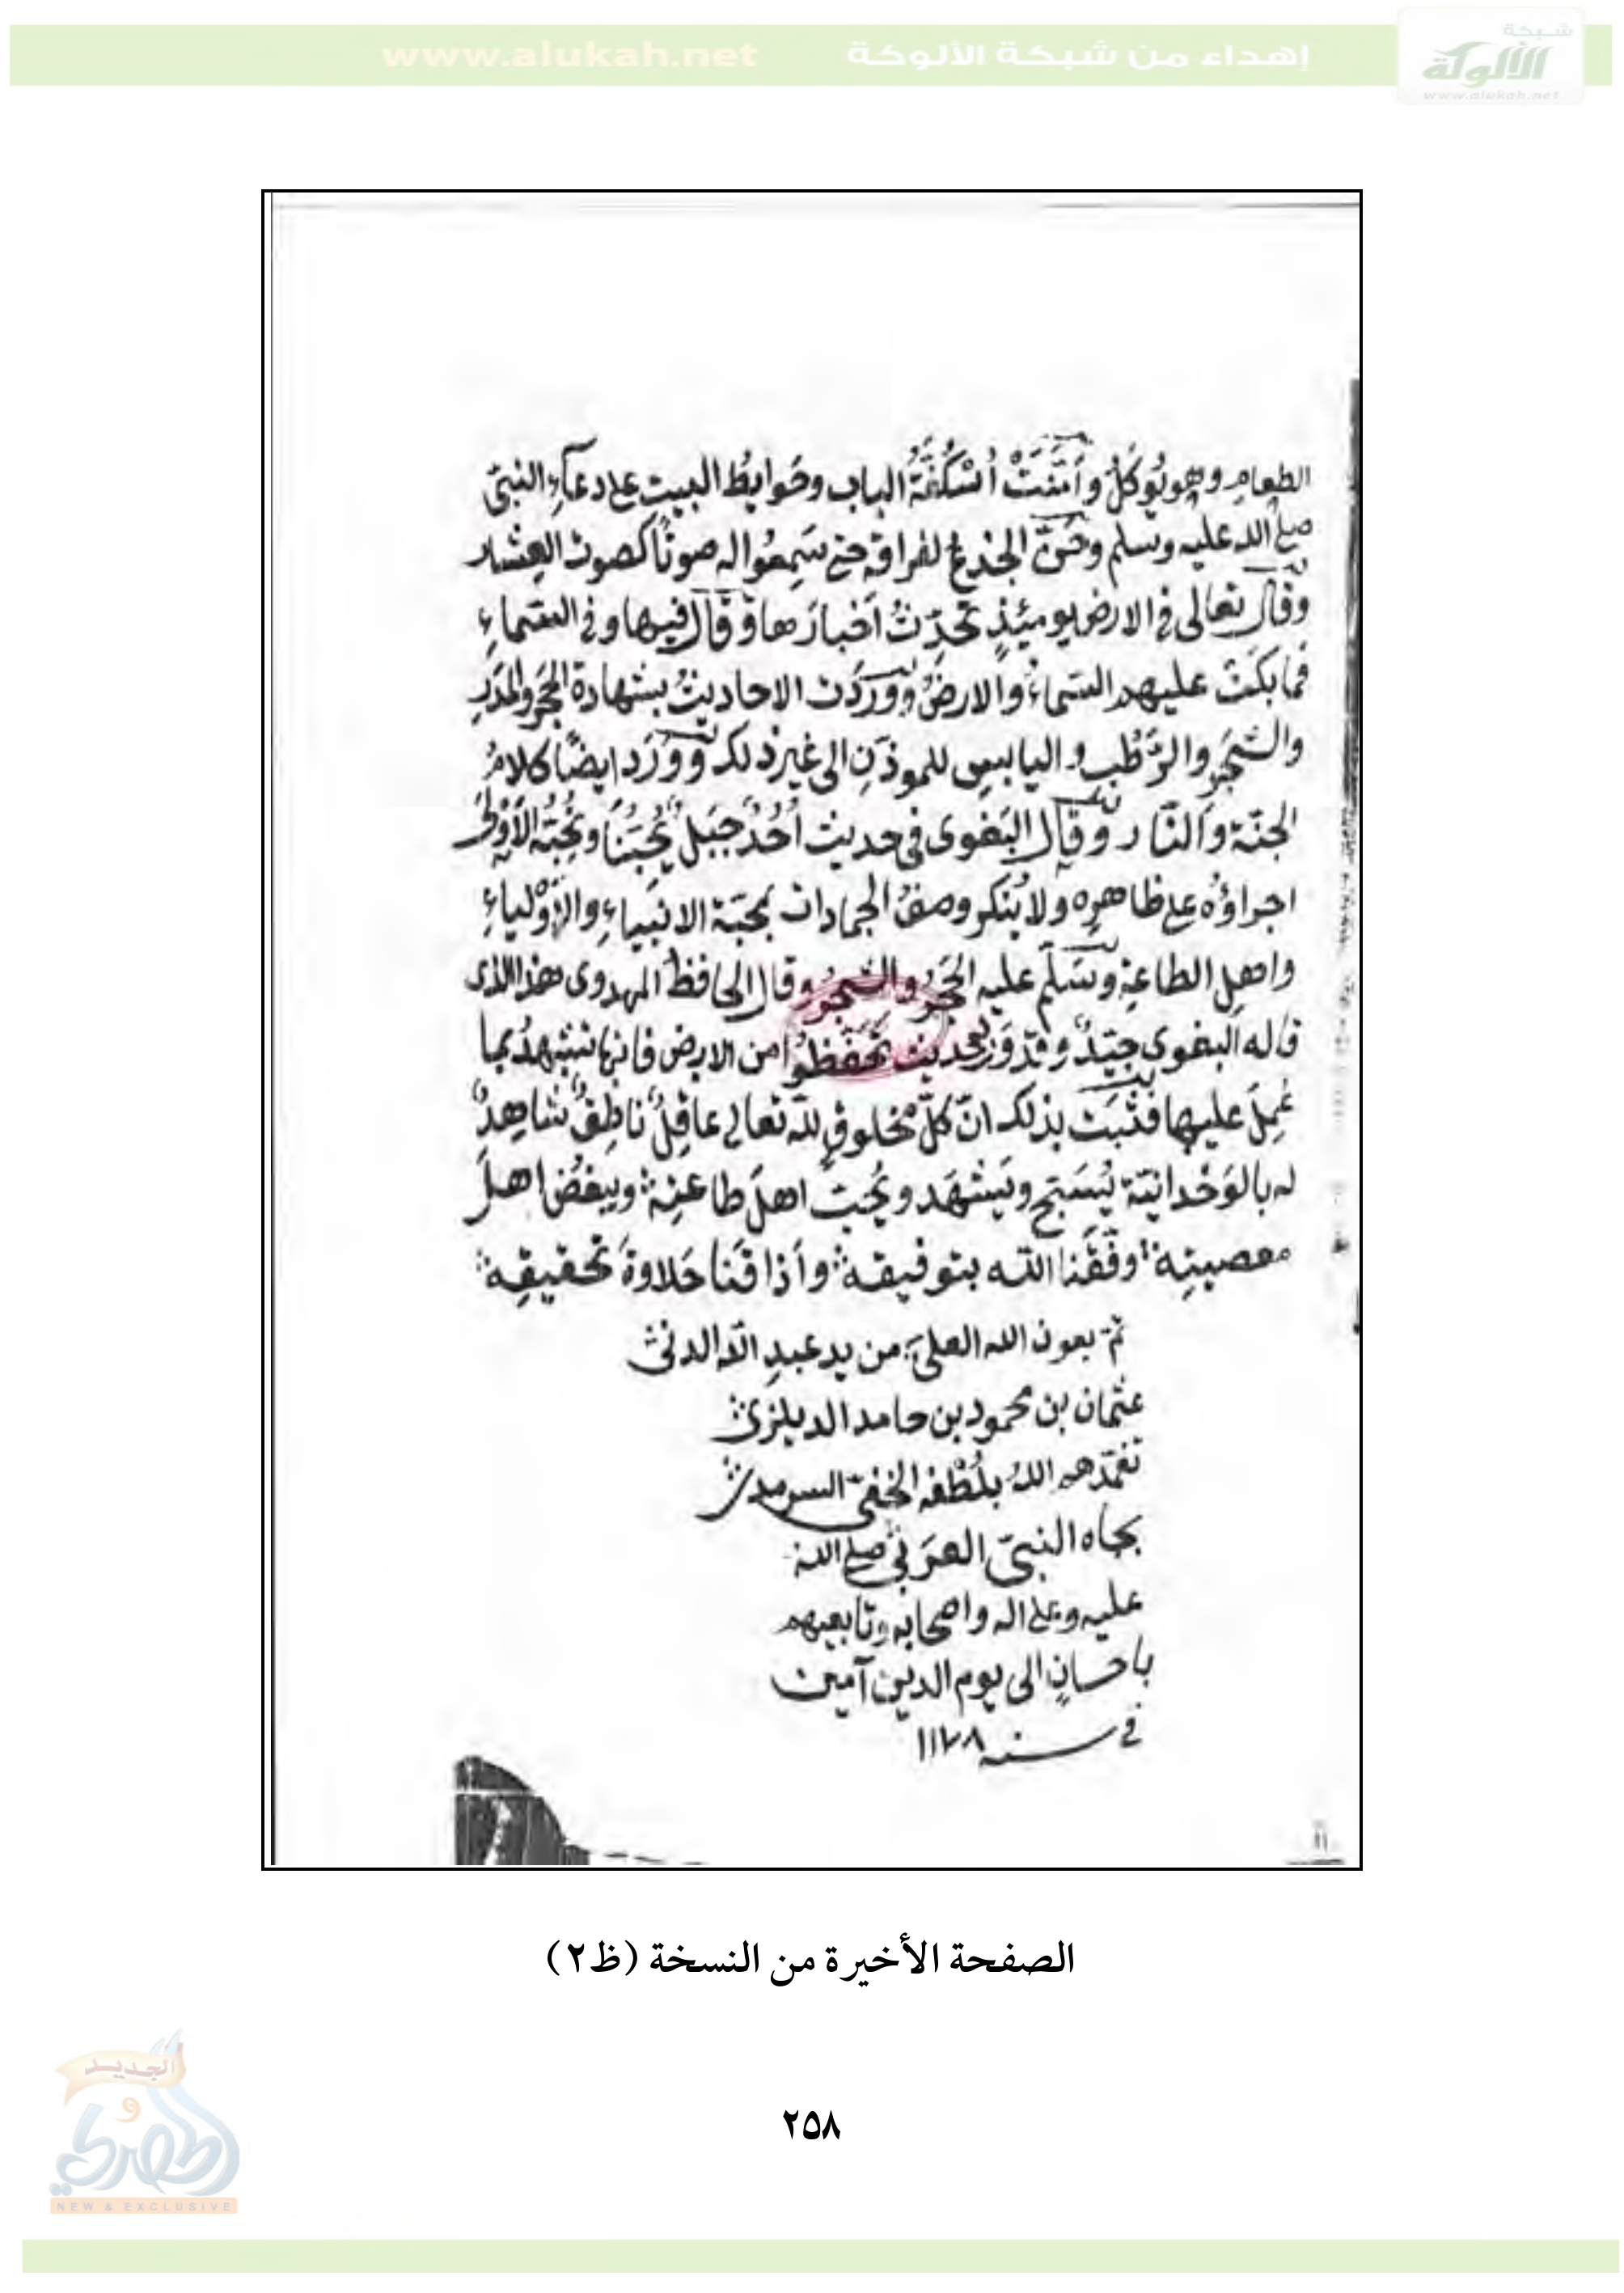 شبكة
الألوكة
www.alukah.net
إهداء من شبكة الألوكة www.alukah.net
الطعامِ وهو يُوكَلُ وأَمَّنَتْ أُسْكُفَّةُ الباب وحَوايطُ البيت على دعآءِ النبىّ
صلى الله عليه وسلم وحَنَّ الجذعُ لفراقه حتى سَمِعُوا له صوتًا كصوت العِشار
وقال تعالى فى الارض يومئِذٍ تُحَدِّثُ أَخبارَها وقال فيها وفى السّماءِ
فما بكَتْ عليهم السّماءُ والارضُ ووَرَدَت الاحاديثُ بشهادة الحَجَر والمَدَرِ
والشَّجَرِ والرَّطْبِ واليابسِ للموذّنِ الى غير ذلك ووَرَدَ ايضًا كلامُ
الجنّة والنّار وقال البَغوى فى حديث أُحُدٌ جَبَلٌ يُحِبّنَا ونُحِبّه الأَوْلَى
اجراؤُه على ظاهرِه ولا يُنكر وصفُ الجمادات بمحبّة الانبياءِ والأَوْلياءِ
واهلِ الطاعةِ وسَلَّم عليه الحَجَرُ والشجرُ وقال الحافظ المهدوى هذا الذى
قاله البغوى جيّدٌ وقد وَرَد بحديث تَحَفَّظُوا من الارض فانها تشهدُ بما
عُمِلَ عليها فثبَتَ بذلك انّ كلّ مخلوقٍ للّه تعالى عاقِلٌ ناطِقٌ شاهِدٌ
له بالوَحْدانيّة يُسَبّح ويَشْهَد ويُحبّ اهلَ طاعتِه ويبغُضُ اهلَ
معصيتِه وفّقَنا اللّه بتوفيقه وأذاقَنا حَلاوةَ تحقيقِه
تمّ بعون الله العلىّ من يد عبدِ اللّه الدنى
عثمان بن محمود بن حامد الديلزى
تغمّدهم اللهُ بلُطْفه الخفىّ السرمدى
بجاه النبىّ العَرَبىّ صلى الله
عليه وعلى اله واصحابه وتابعيهم
باحسانٍ الى يوم الدين آمين
فى سنه ١١٧٨
الصفحة الأخيرة من النسخة (ظ٢)
٢٥٨
الجديد
و
الحصري
NEW & EXCLUSIVE